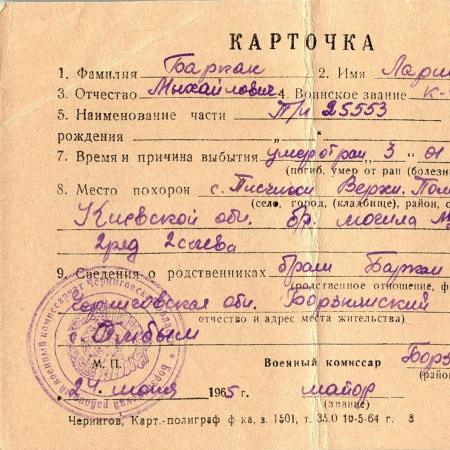 КАРТОЧКА
1. Фамилия Баркан 2. Имя Лари
3. Отчество Михайлович 4. Воинское звание к-
5. Наименование части П/П 25553
рождения „ “
7. Время и причина выбытия умер от ран „3“
(погиб, умер от ран (болезн
8. Место похорон с. Верхн.
(село, город, (кладбище), район, о
Киевской обл. бр. могила
2 ряд 2 слева
9. Сведения о родственниках Баркан
(родственное отношение, ф
Черниговская обл.
отчество и адрес места жительства)
с.
М. П. Военный комиссар Борз
(райо
24 июня 1965 г. майор
(звание)
Чернигов, Карт.-полиграф ф-ка, з. 1501, т. 35.0 10-5-64 г. 8